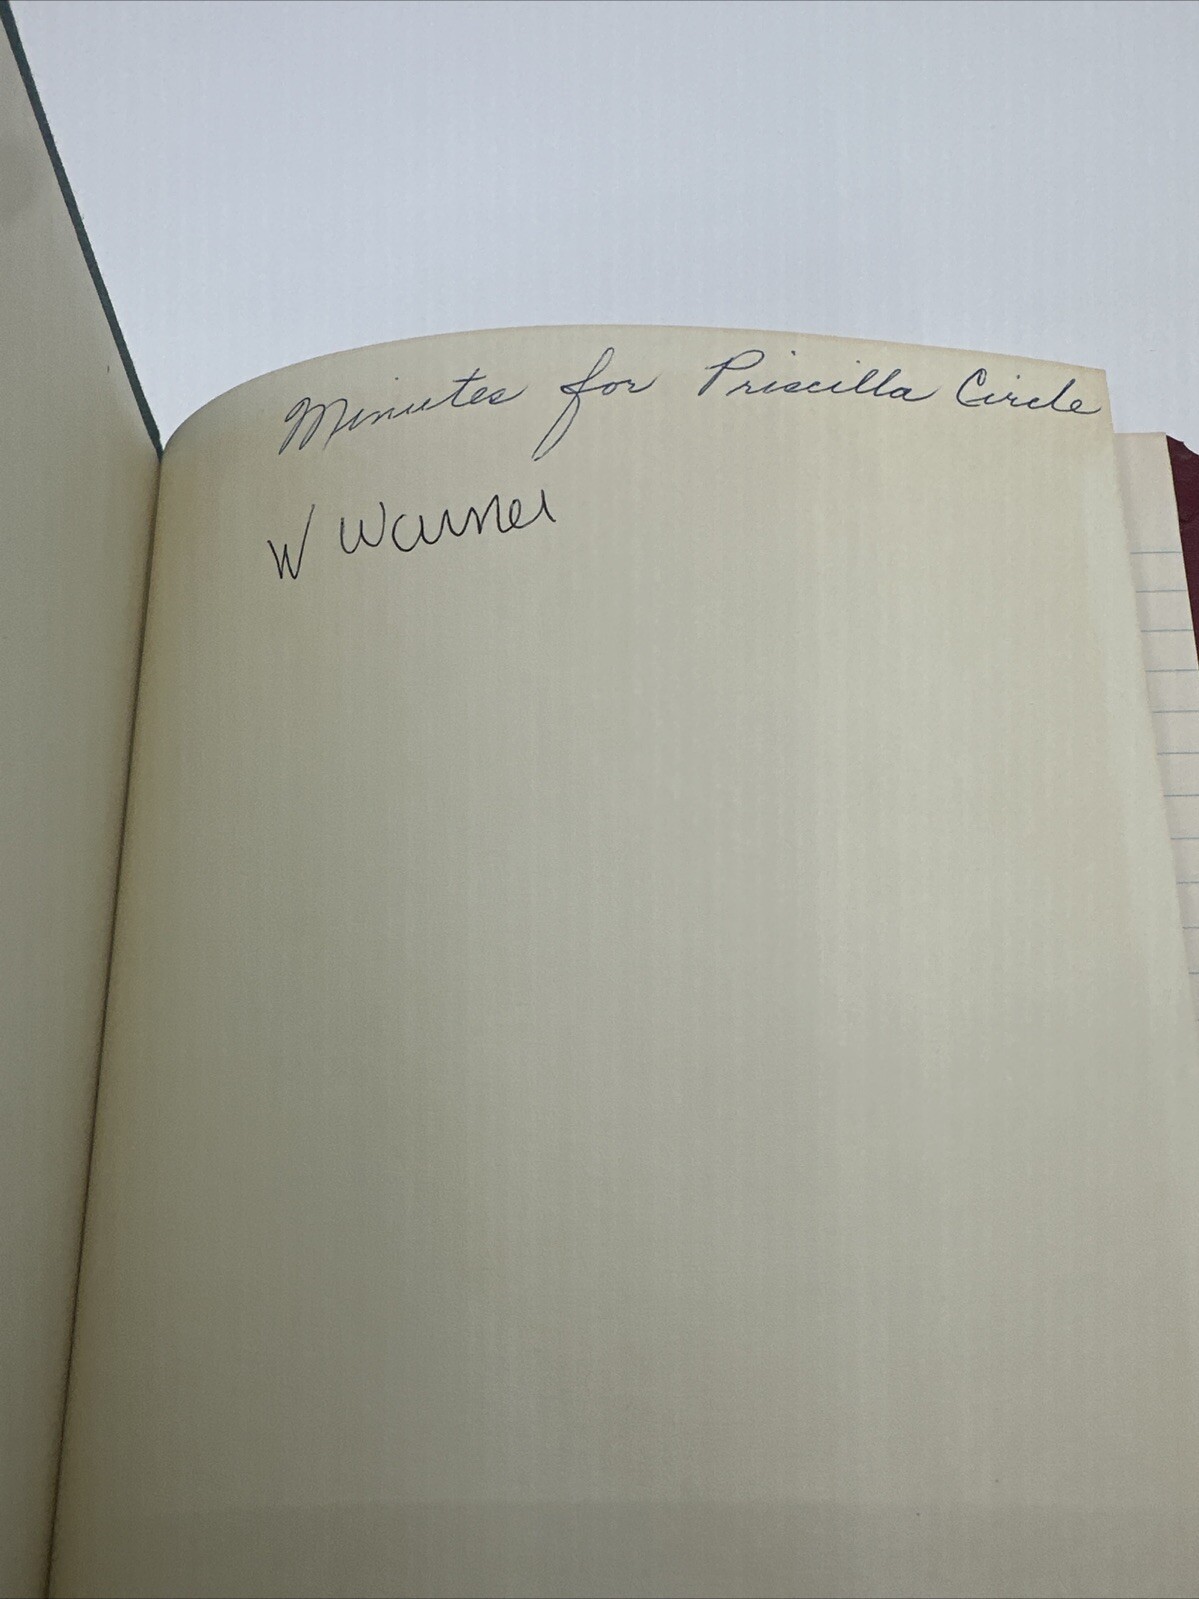 Minutes for Priscilla Circle
W Warner